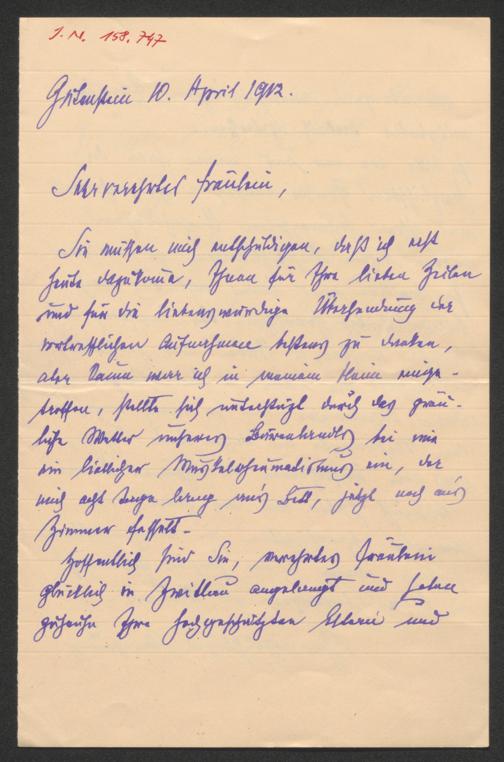 J. N. 158.747
Gutenstein 10. April 1912.
Sehr verehrtes Fräulein,
Sie müssen mich entschuldigen, daß ich erst
heute dazukomme, Ihnen für Ihre lieben Zeilen
und für die liebenswürdige Übersendung der
vortrefflichen Aufnahmen bestens zu danken,
aber kaum war ich in meinem Heim einge-
troffen, stellte sich unterstützt durch das gräu-
liche Wetter unseres bei mir
ein lieblicher Muskelrheumatismus ein, der
mich acht Tage lang ans Bett, jetzt noch ans
Zimmer fesselt.
Hoffentlich sind Sie, verehrtes Fräulein
glücklich in Zwittau angelangt und haben
zuhause Ihre hochgeschätzten Eltern und